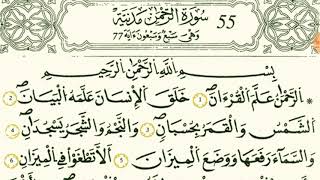 سُورَةُ الرَّحْمَٰنِ مَدَنِيَّة 55
وَهْيَ سَبْعٌ وَسَبْعُونَ ءَايَة 77
بِسْمِ اللَّهِ الرَّحْمَٰنِ الرَّحِيمِ
الرَّحْمَٰنُ عَلَّمَ الْقُرْءَانَ 1 خَلَقَ الْإِنسَٰنَ عَلَّمَهُ الْبَيَانَ 2
الشَّمْسُ وَالْقَمَرُ بِحُسْبَانٍ 3 وَالنَّجْمُ وَالشَّجَرُ يَسْجُدَٰنِ 4
وَالسَّمَآءَ رَفَعَهَا وَوَضَعَ الْمِيزَانَ 5 أَلَّا تَطْغَوْا فِي الْمِيزَانِ 6